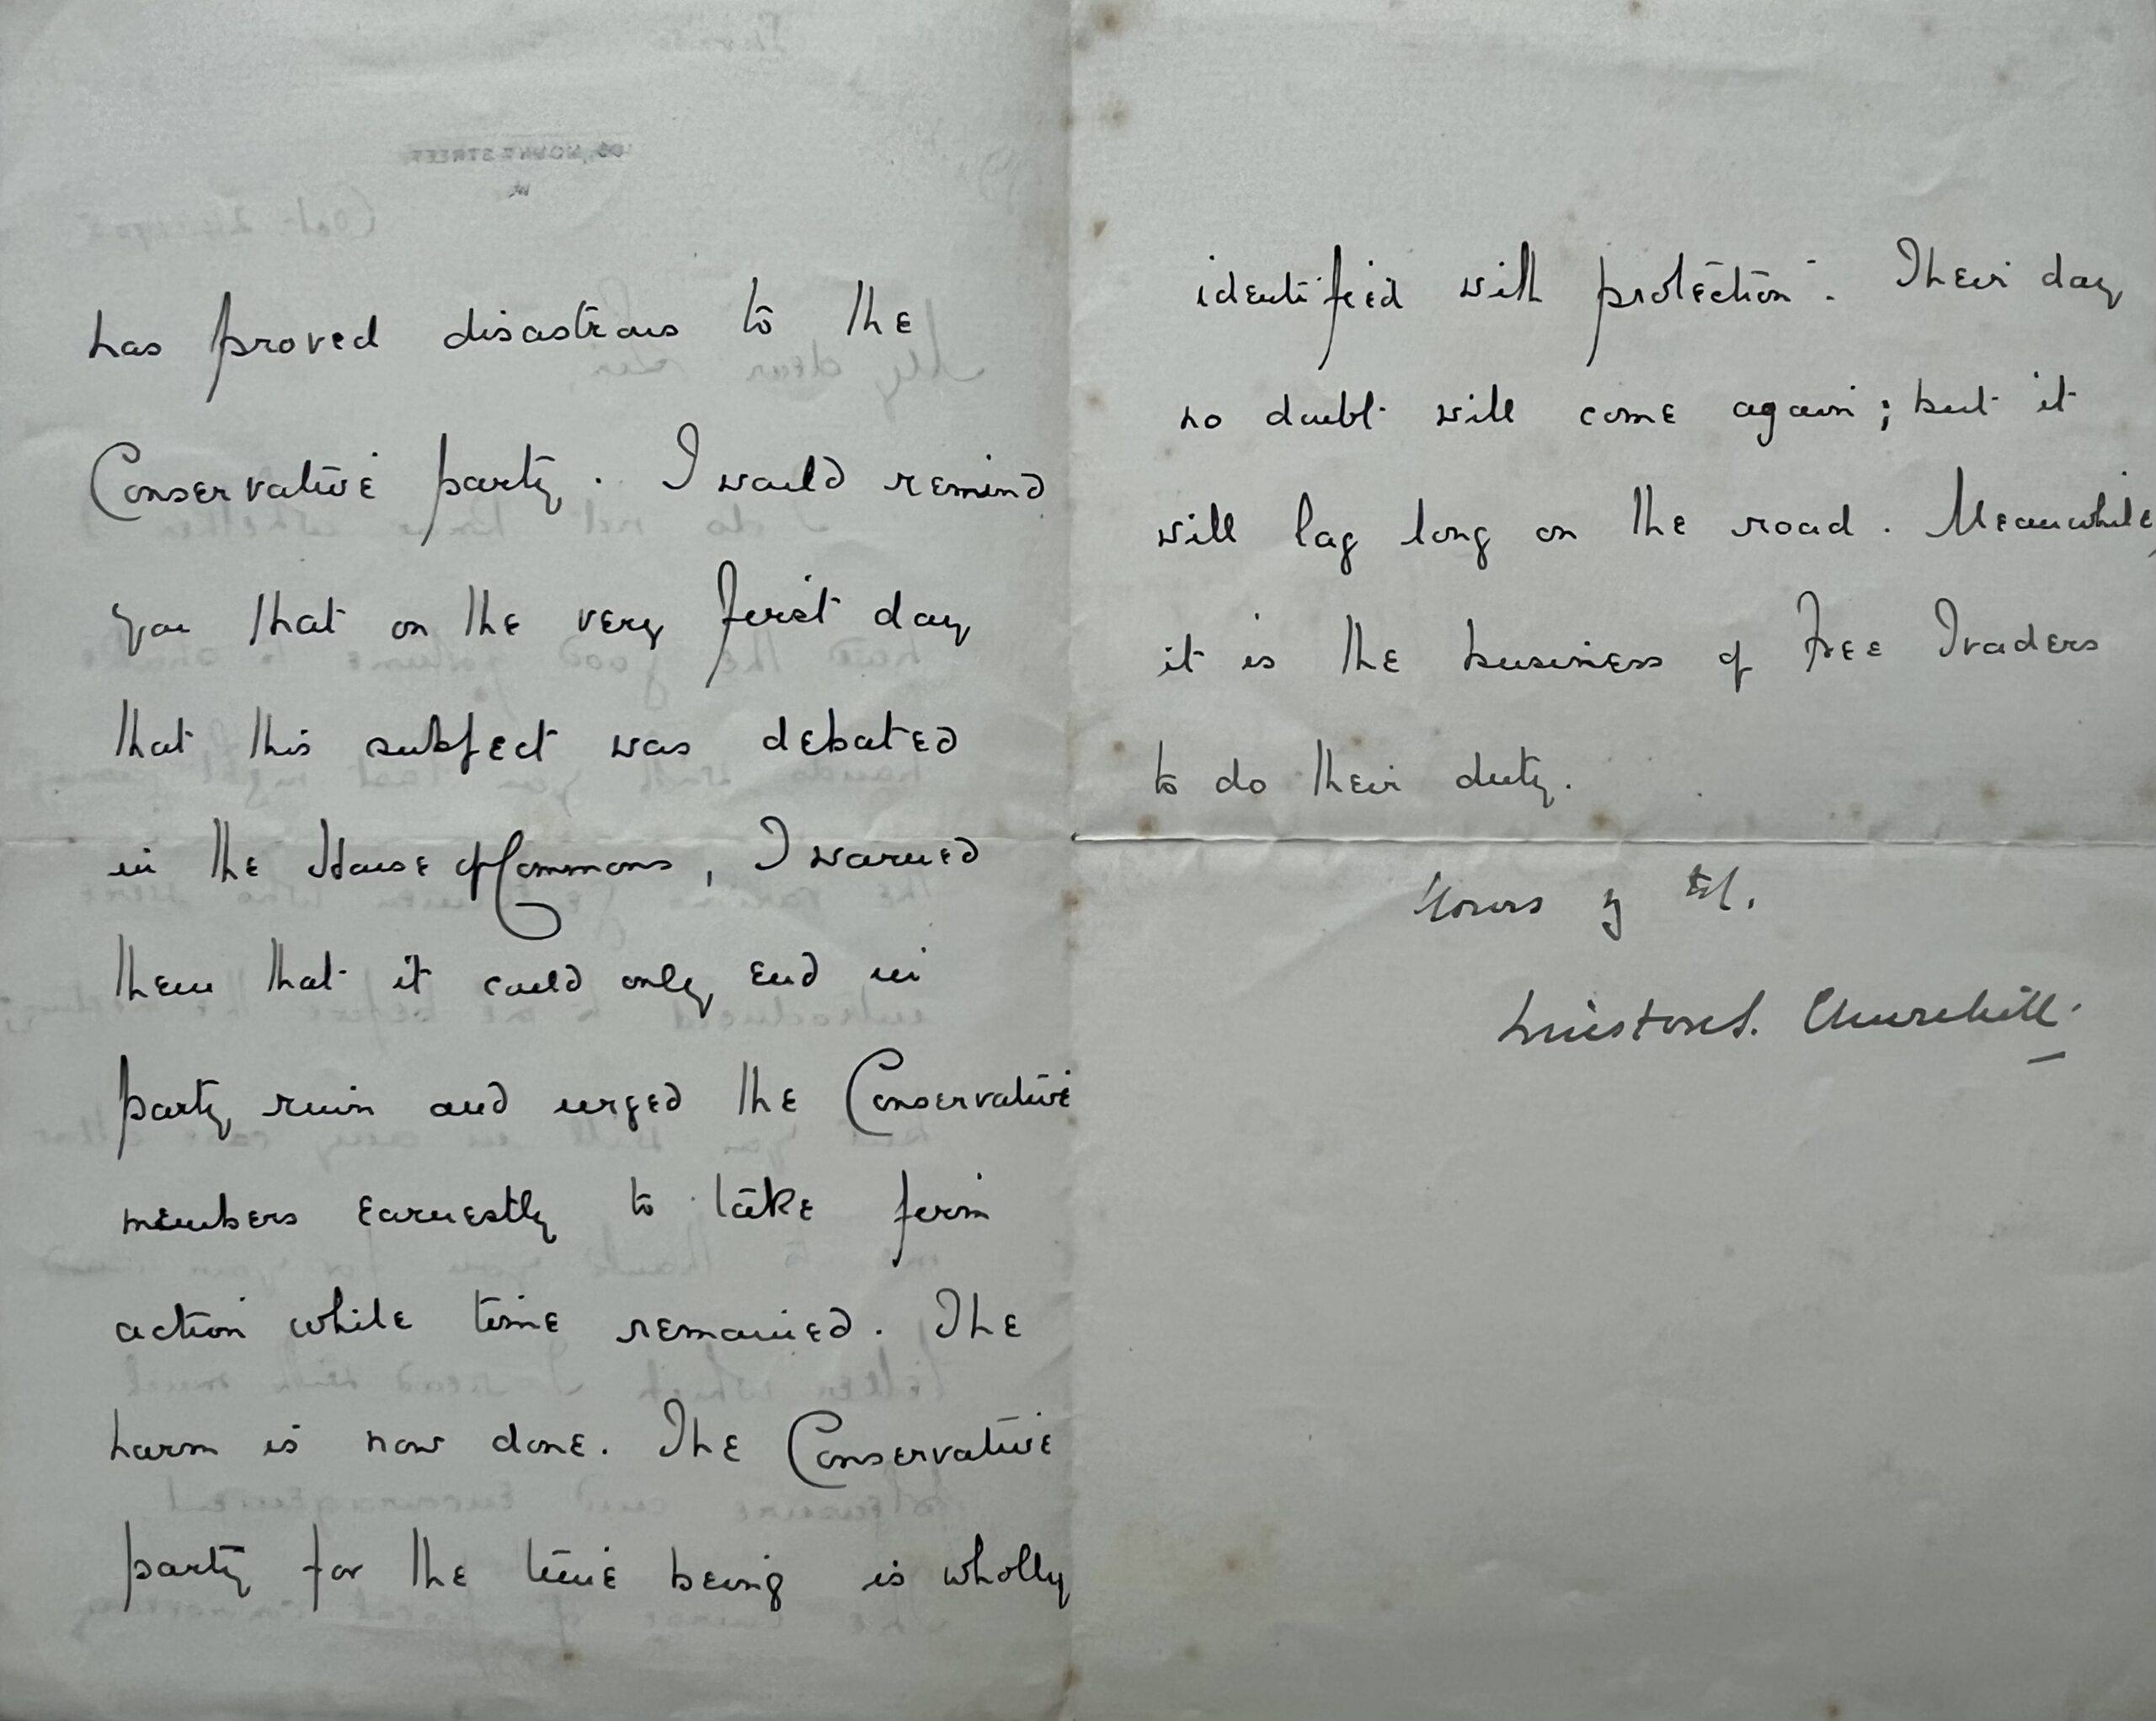 has proved disastrous to the
Conservative party. I would remind
you that on the very first day
that this subject was debated
in the House of Commons, I warned
them that it could only end in
party ruin and urged the Conservative
members earnestly to take firm
action while time remained. The
harm is now done. The Conservative
party for the time being is wholly
identified with protection. Their day
no doubt will come again; but it
will lag long on the road. Meanwhile,
it is the business of Free Traders
to do their duty.
Yours
Winston S. Churchill